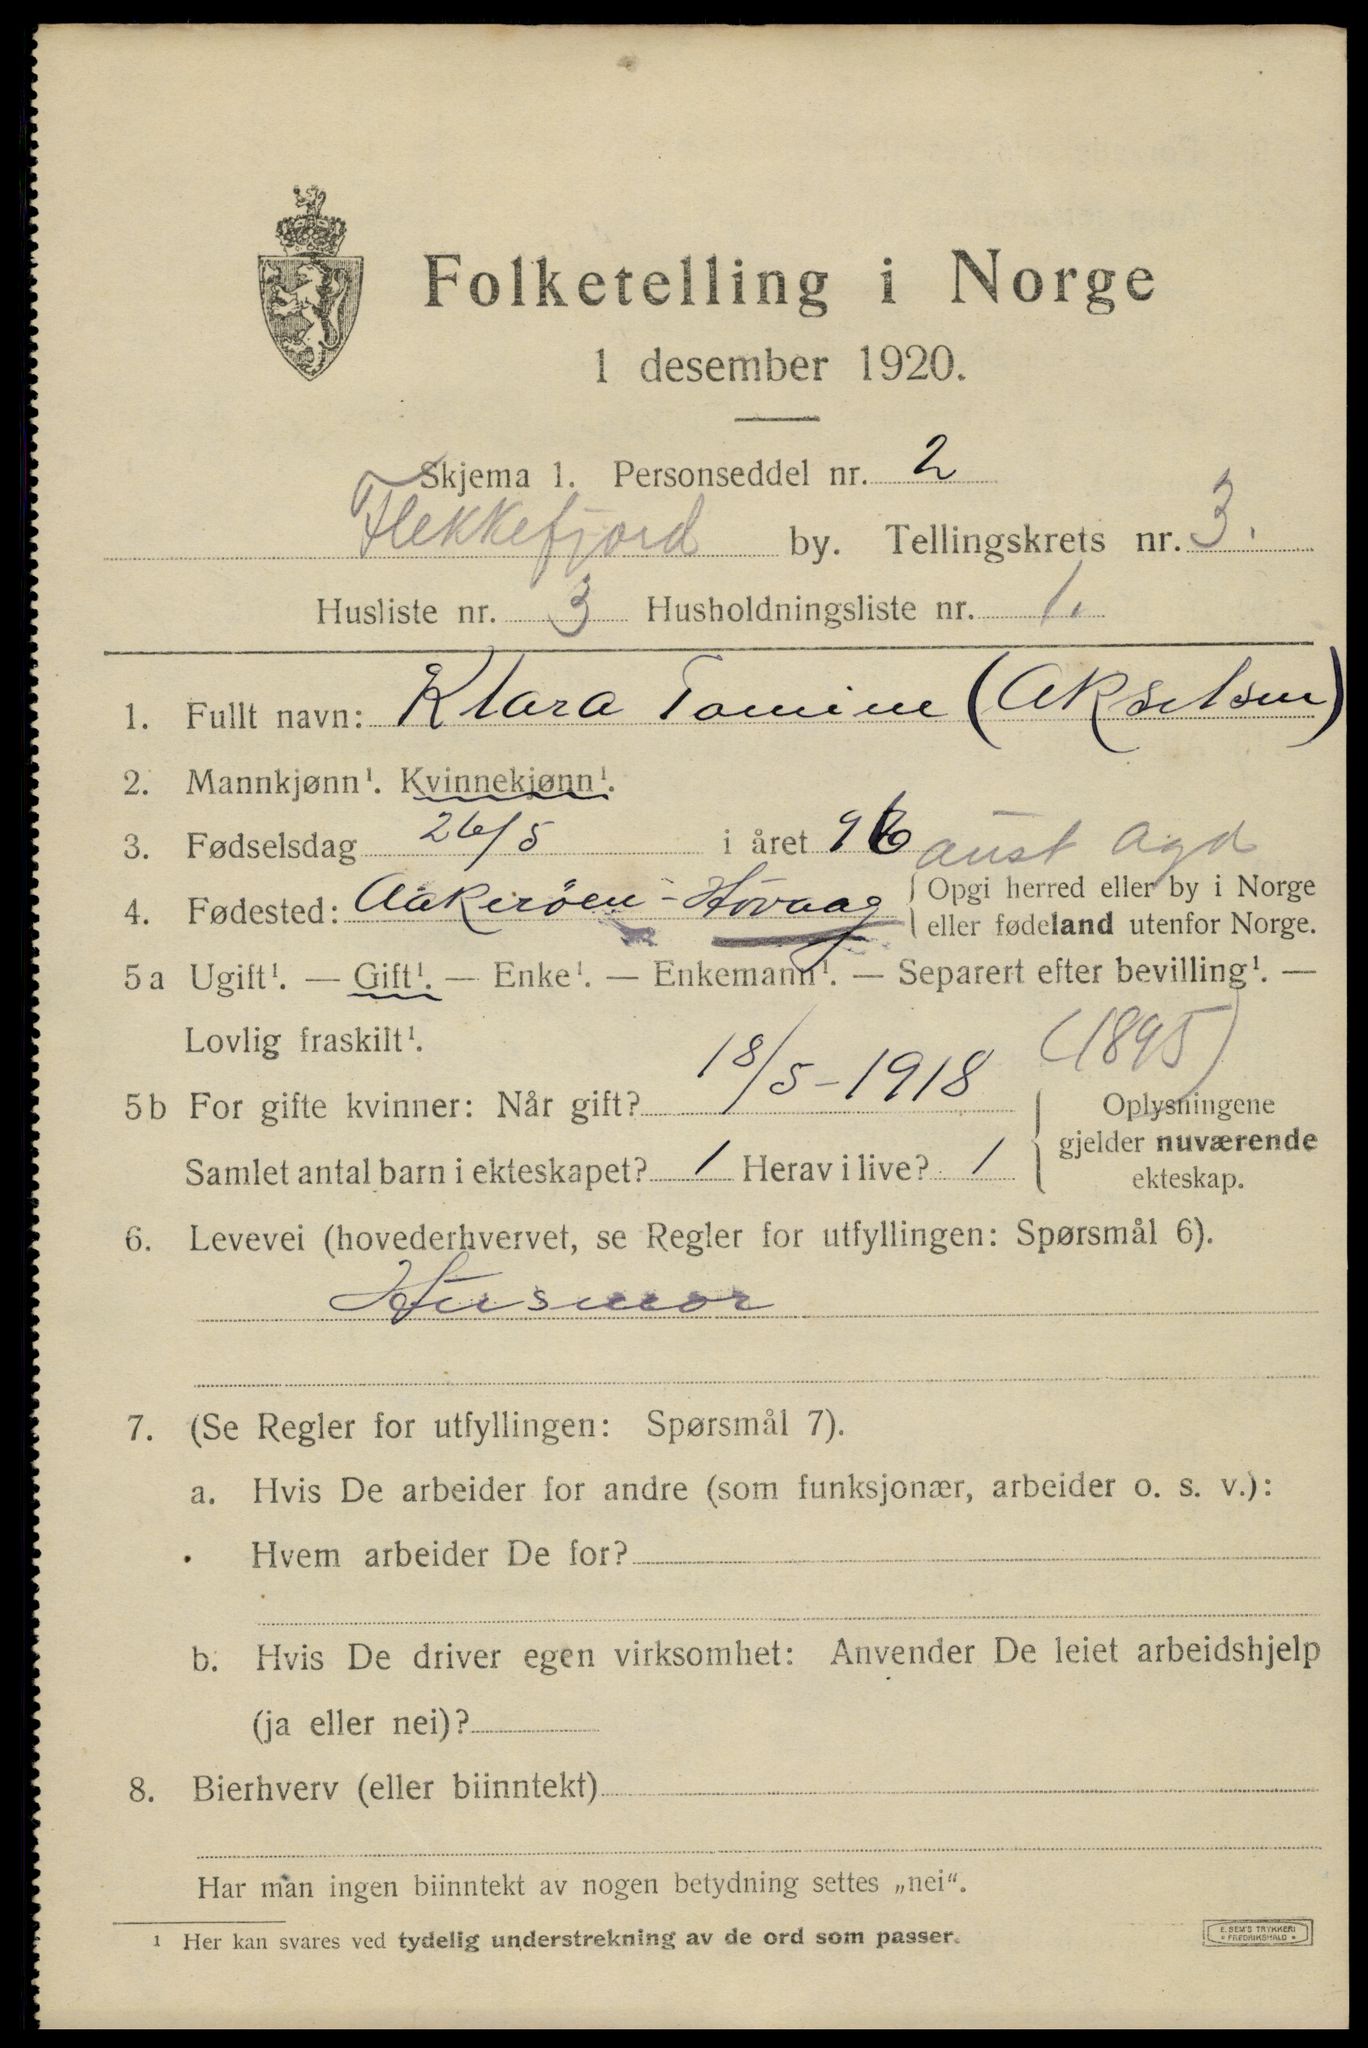 Folketelling i Norge
1 desember 1920.
Skjema 1. Personseddel nr. 2
Flekkefjord by. Tellingskrets nr. 3.
Husliste nr. 3 Husholdningsliste nr. 1.
1. Fullt navn: Klara Tomine (Akselsen)
2. Mannkjønn¹. Kvinnekjønn¹.
3. Fødselsdag 26/5 i året 96 aust agd
4. Fødested: Aakerøen - Høvaag { Opgi herred eller by i Norge
eller fødeland utenfor Norge.
5a Ugift¹. — Gift¹. — Enke¹. — Enkemann¹. — Separert efter bevilling¹. —
Lovlig fraskilt¹. (1895)
5b For gifte kvinner: Når gift? 18/5-1918 { Oplysningene
gjelder nuværende
ekteskap.
Samlet antal barn i ekteskapet? 1 Herav i live? 1
6. Levevei (hovederhvervet, se Regler for utfyllingen: Spørsmål 6).
Husmor
7. (Se Regler for utfyllingen: Spørsmål 7).
a. Hvis De arbeider for andre (som funksjonær, arbeider o. s. v.):
Hvem arbeider De for?
b. Hvis De driver egen virksomhet: Anvender De leiet arbeidshjelp
(ja eller nei)?
8. Bierhverv (eller biinntekt)
Har man ingen biinntekt av nogen betydning settes „nei“.
¹ Her kan svares ved tydelig understrekning av de ord som passer.
E. SEM'S TRYKKERI
FREDRIKSHALD